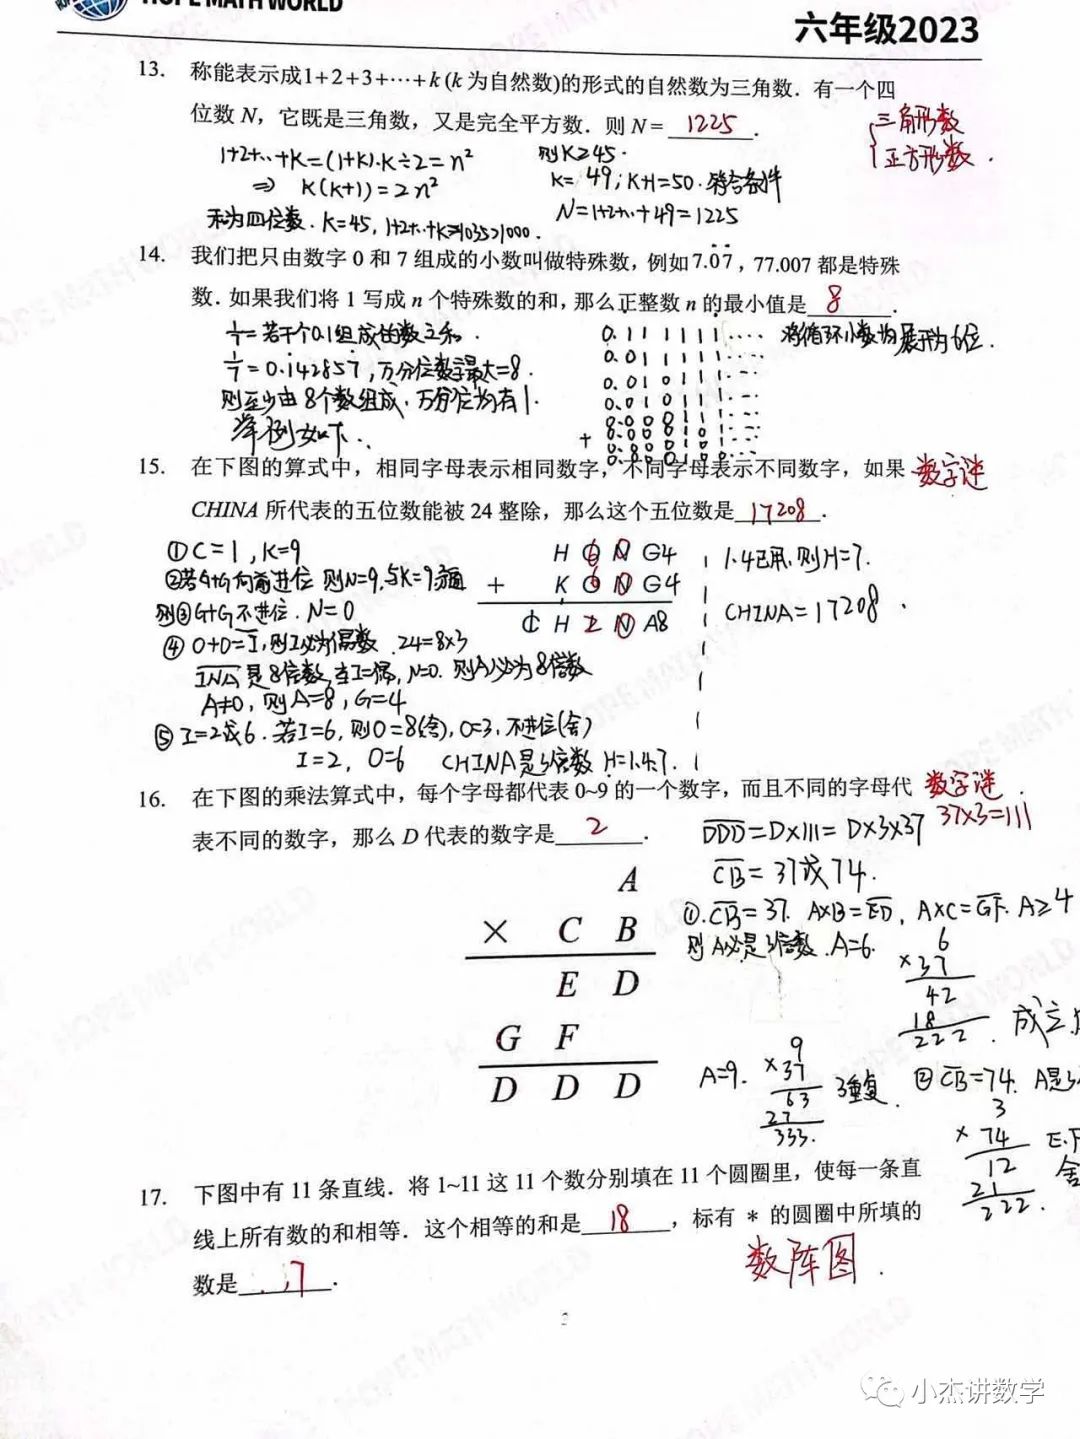 HOPE MATH WORLD
六年级2023
13. 称能表示成1+2+3+⋯+k (k 为自然数)的形式的自然数为三角数．有一个四
位数 N，它既是三角数，又是完全平方数．则 N = 1225 .
三角形数
正方形数.
1+2+..+K=(1+K)·K÷2=n²
⇒ K(K+1)=2n²
和为四位数. K=45, 1+2+..+K=1035>1000.
则K≥45.
K=49; K+1=50. 符合条件
N=1+2+..+49=1225
14. 我们把只由数字 0 和 7 组成的小数叫做特殊数，例如 7.0̇7̇，77.007 都是特殊
数．如果我们将 1 写成 n 个特殊数的和，那么正整数 n 的最小值是 8 .
1/7=若干个0.1组成的数之和.
1/7=0.1̇42857̇, 万分位数字最大=8.
则至少由8个数组成, 万分位均有1.
举例如下..
将循环小数均展开为6位.
0.111111....
0.011111....
0.010111....
0.010111....
15. 在下图的算式中，相同字母表示相同数字，不同字母表示不同数字，如果 数字谜
CHINA 所代表的五位数能被 24 整除，那么这个五位数是 17208 .
① C=1, K=9
则③G+G不进位. N=0
④ O+O=I, 则I必为偶数. 24=8×3
INA 是8倍数, 当I=偶, N=0. 则A必为8倍数
A≠0, 则A=8, G=4
⑤ I=2或6. 若I=6, 则O=8(舍), O=3, 不进位(舍)
I=2, O=6 CHINA是3倍数 H=1.4.7.
H O N G4
+ K O N G4
C H I N A8
1.4已用, 则H=7.
CHINA=17208.
16. 在下图的乘法算式中，每个字母都代表 0~9 的一个数字，而且不同的字母代 数字谜.
表不同的数字，那么 D 代表的数字是 2 . 37×3=111
DDD=D×111=D×3×37
CB=37或74.
A
× C B
E D
G F
D D D
①.CB=37. A×B=ED, A×C=GF. A≥4
则A必是3倍数. A=6.
6
×37
42
18
222. 成立
A=9.
9
×37
63
27
333.
3重复.
② CB=74. A是
3
×74
12
21
222.
E.F
舍
17. 下图中有 11 条直线．将 1~11 这 11 个数分别填在 11 个圆圈里，使每一条直
线上所有数的和相等．这个相等的和是 18 ，标有 * 的圆圈中所填的
数是 7 .
数阵图.
2
小杰讲数学